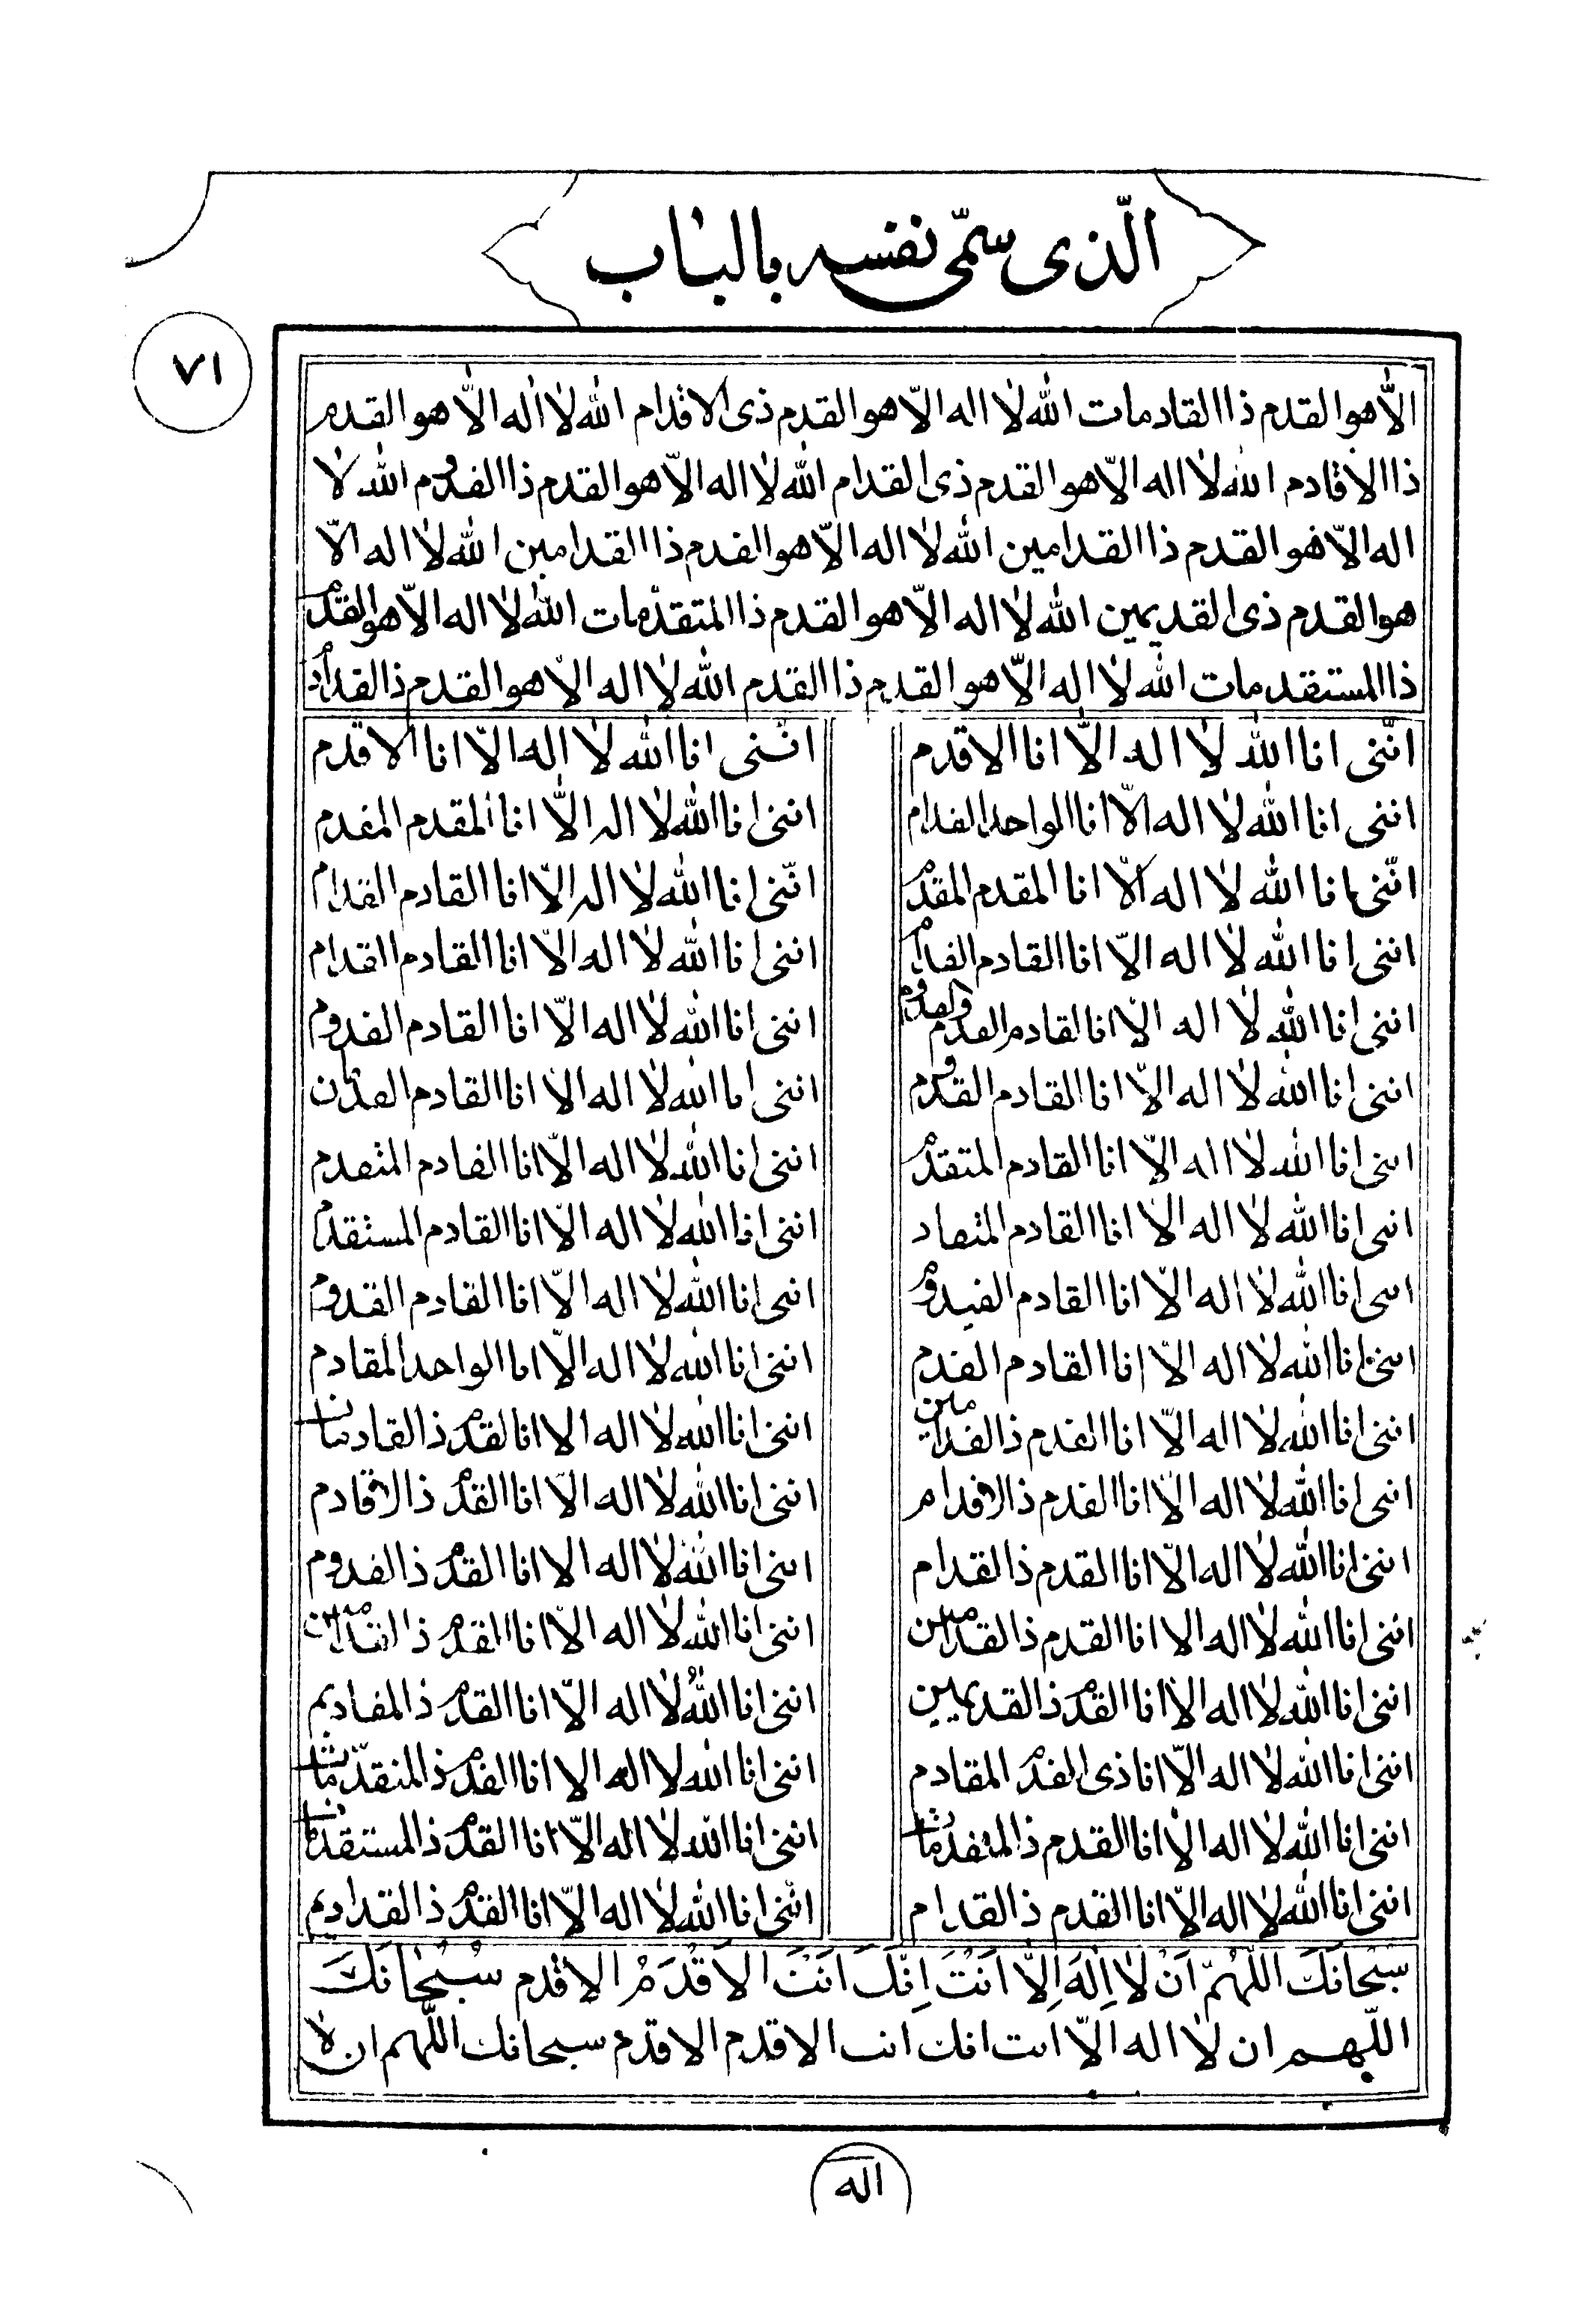 الّذی سمّی نفسه بالباب
٧١
الّا هو القدم ذا القادمات الله لا اله الّا هو القدم ذی الاقدام الله لا اله الّا هو القدم
ذا الاقادم الله لا اله الّا هو القدم ذی القدام الله لا اله الّا هو القدم ذا القدوم الله لا
اله الّا هو القدم ذا القدامین الله لا اله الّا هو القدم ذا القدامین الله لا اله الّا
هو القدم ذی القدیمین الله لا اله الّا هو القدم ذا المتقدّمات الله لا اله الّا هو القدم
ذا المستقدمات الله لا اله الّا هو القدم ذا القدم الله لا اله الّا هو القدم ذا
انّنی انا الله لا اله الّا انا الاقدم انّنی انا الله لا اله الّا انا الاقدم
اننی انا الله لا اله الّا انا الواحد القدام اننی انا الله لا اله الّا انا المقدم المقدم
انّنی انا الله لا اله الّا انا المقدم المقدم انّنی انا الله لا اله الّا انا القادم القدام
اننی انا الله لا اله الّا انا القادم القدام اننی انا الله لا اله الّا انا القادم القدام
اننی انا الله لا اله الّا انا القادم القدم اننی انا الله لا اله الّا انا القادم القدوم
اننی انا الله لا اله الّا انا القادم القدوم اننی انا الله لا اله الّا انا القادم القدمان
اننی انا الله لا اله الّا انا القادم المتقدم اننی انا الله لا اله الّا انا القادم المتقدم
اننی انا الله لا اله الّا انا القادم المتقاد اننی انا الله لا اله الّا انا القادم المستقدم
اننی انا الله لا اله الّا انا القادم القیدوم اننی انا الله لا اله الّا انا القادم القدوم
اننی انا الله لا اله الّا انا القادم القدم اننی انا الله لا اله الّا انا الواحد المقادم
اننی انا الله لا اله الّا انا القدم ذالقدامین اننی انا الله لا اله الا انا لقدم ذالقادمات
اننی انا الله لا اله الّا انا القدم ذالاقدام اننی انا الله لا اله الّا انا القدم ذالاقادم
اننی انا الله لا اله الّا انا القدم ذالقدام اننی انا الله لا اله الا انا القدم ذالقدوم
اننی انا الله لا اله الا انا القدم ذالقدامین اننی انا الله لا اله الّا انا القدم
اننی انا الله لا اله الا انا القدم ذالقدیمین اننی انا الله لا اله الّا انا القدم ذالمقادیم
اننی انا الله لا اله الّا انا ذی القدم المقادم اننی انا الله لا اله الا انا القدم ذالمتقدّمات
اننی انا الله لا اله الا انا القدم ذالمتقدمات اننی انا الله لا اله الّا انا القدم ذالمستقدمات
اننی انا الله لا اله الّا انا القدم ذالقدام انّنی انا الله لا اله الّا انا القدم ذالقدادیم
سُبْحانَكَ اللّهُمّ اَنْ لا اِلهَ اِلّا اَنْتَ اِنّكَ اَنْتَ الاَقْدَمُ الاقدم سُبْحانَكَ
اللّهم ان لا اله الّا انت انك انت الاقدم الاقدم سبحانك اللّهم ان لا
اله